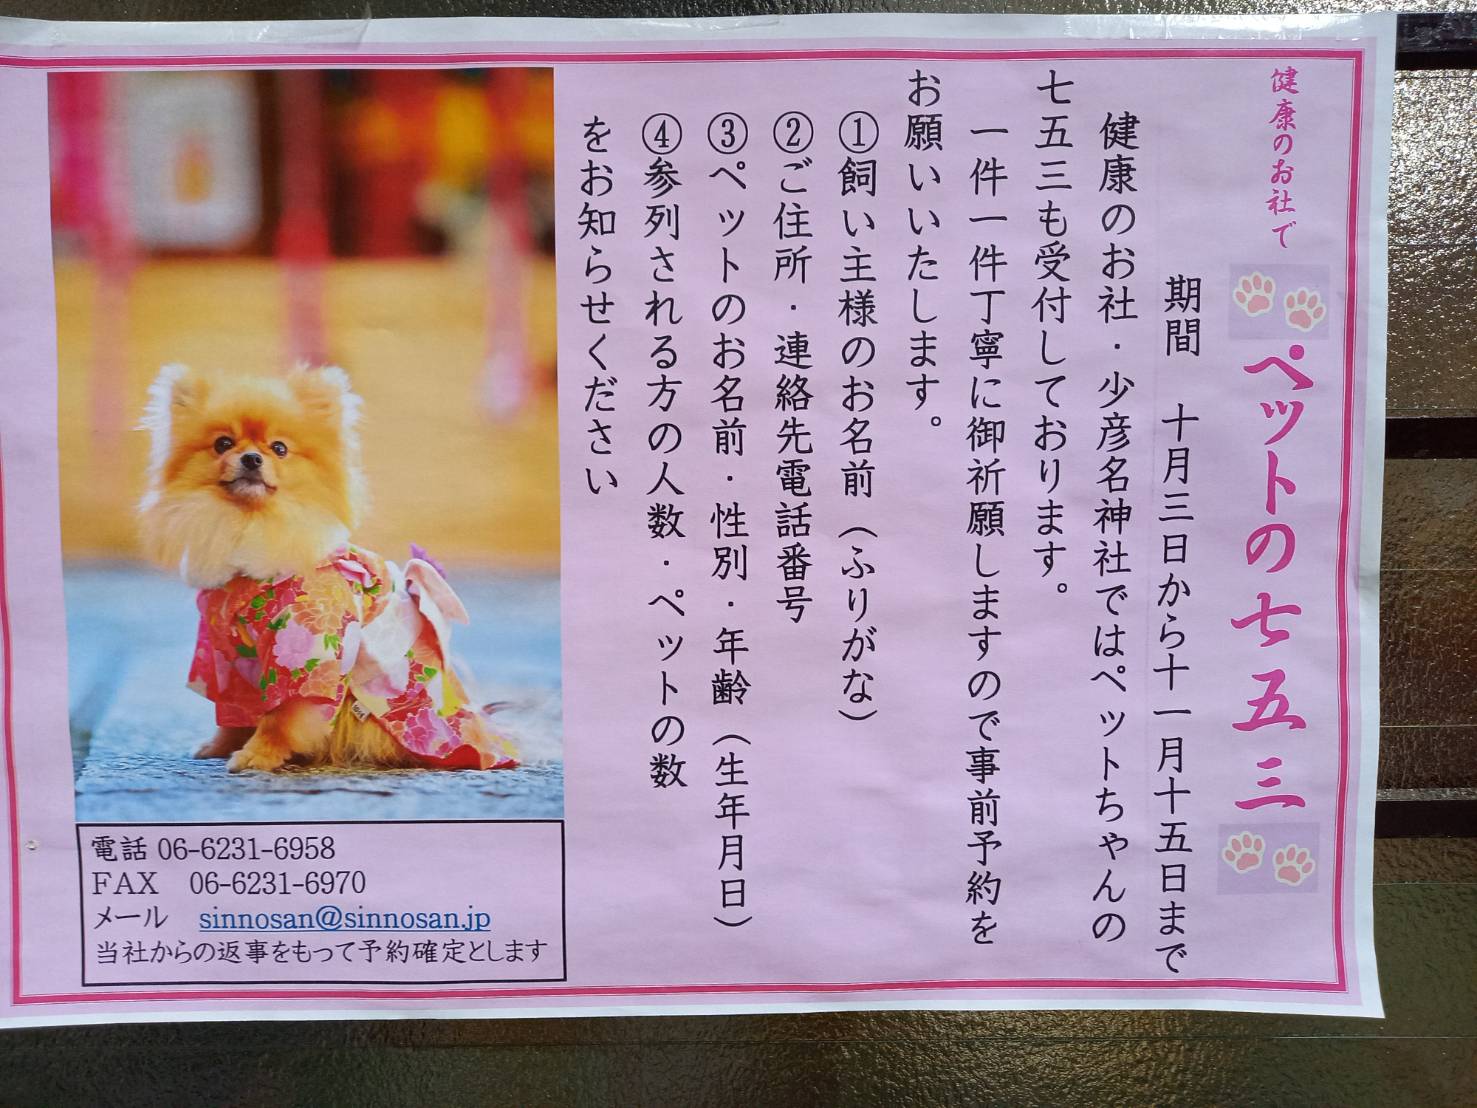 健康のお社で
ペットの七五三
期間　十月三日から十一月十五日まで
健康のお社・少彦名神社ではペットちゃんの
七五三も受付しております。
一件一件丁寧に御祈願しますので事前予約を
お願いいたします。
①飼い主様のお名前（ふりがな）
②ご住所・連絡先電話番号
③ペットのお名前・性別・年齢（生年月日）
④参列される方の人数・ペットの数
をお知らせください
電話 06-6231-6958
FAX　06-6231-6970
メール　sinnosan@sinnosan.jp
当社からの返事をもって予約確定とします